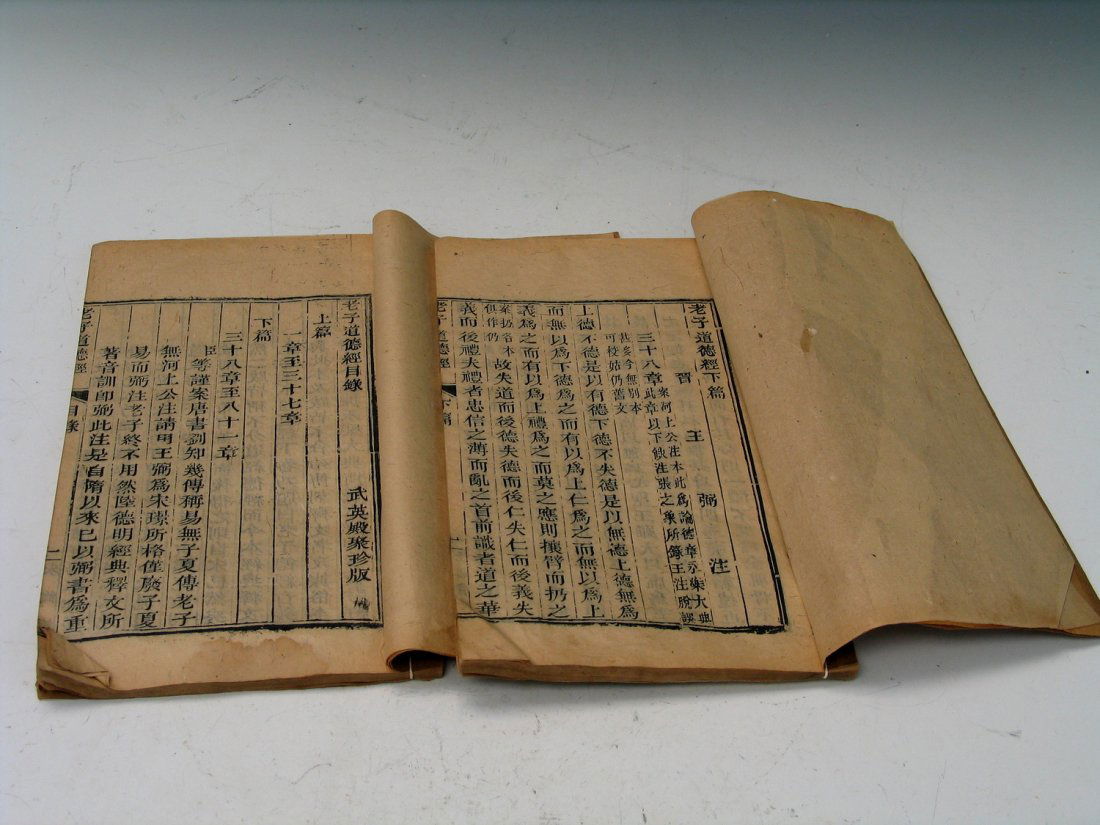 老子道德經下篇
晉 王 弼 注
三十八章 案河上公注本此爲論德章永樂大典
此章以下佚注張之象所錄王注脫誤
甚多今無別本
可校姑仍舊文
上德不德是以有德下德不失德是以無德上德無爲
而無以爲下德爲之而有以爲上仁爲之而無以爲上
義爲之而有以爲上禮爲之而莫之應則攘臂而扔之
案扔各本俱作仍 故失道而後德失德而後仁失仁而後義失
義而後禮夫禮者忠信之薄而亂之首前識者道之華
老子道德經 下篇
老子道德經目錄 武英殿聚珍版
上篇
一章至三十七章
下篇
三十八章至八十一章
臣等謹案唐書劉知幾傳稱易無子夏傳老子
無河上公注請用王弼爲宋璟所格僅廢子夏
易而弼注老子終不用然陸德明經典釋文所
著音訓卽弼此注是自隋以來已以弼書爲重
老子道德經 目錄